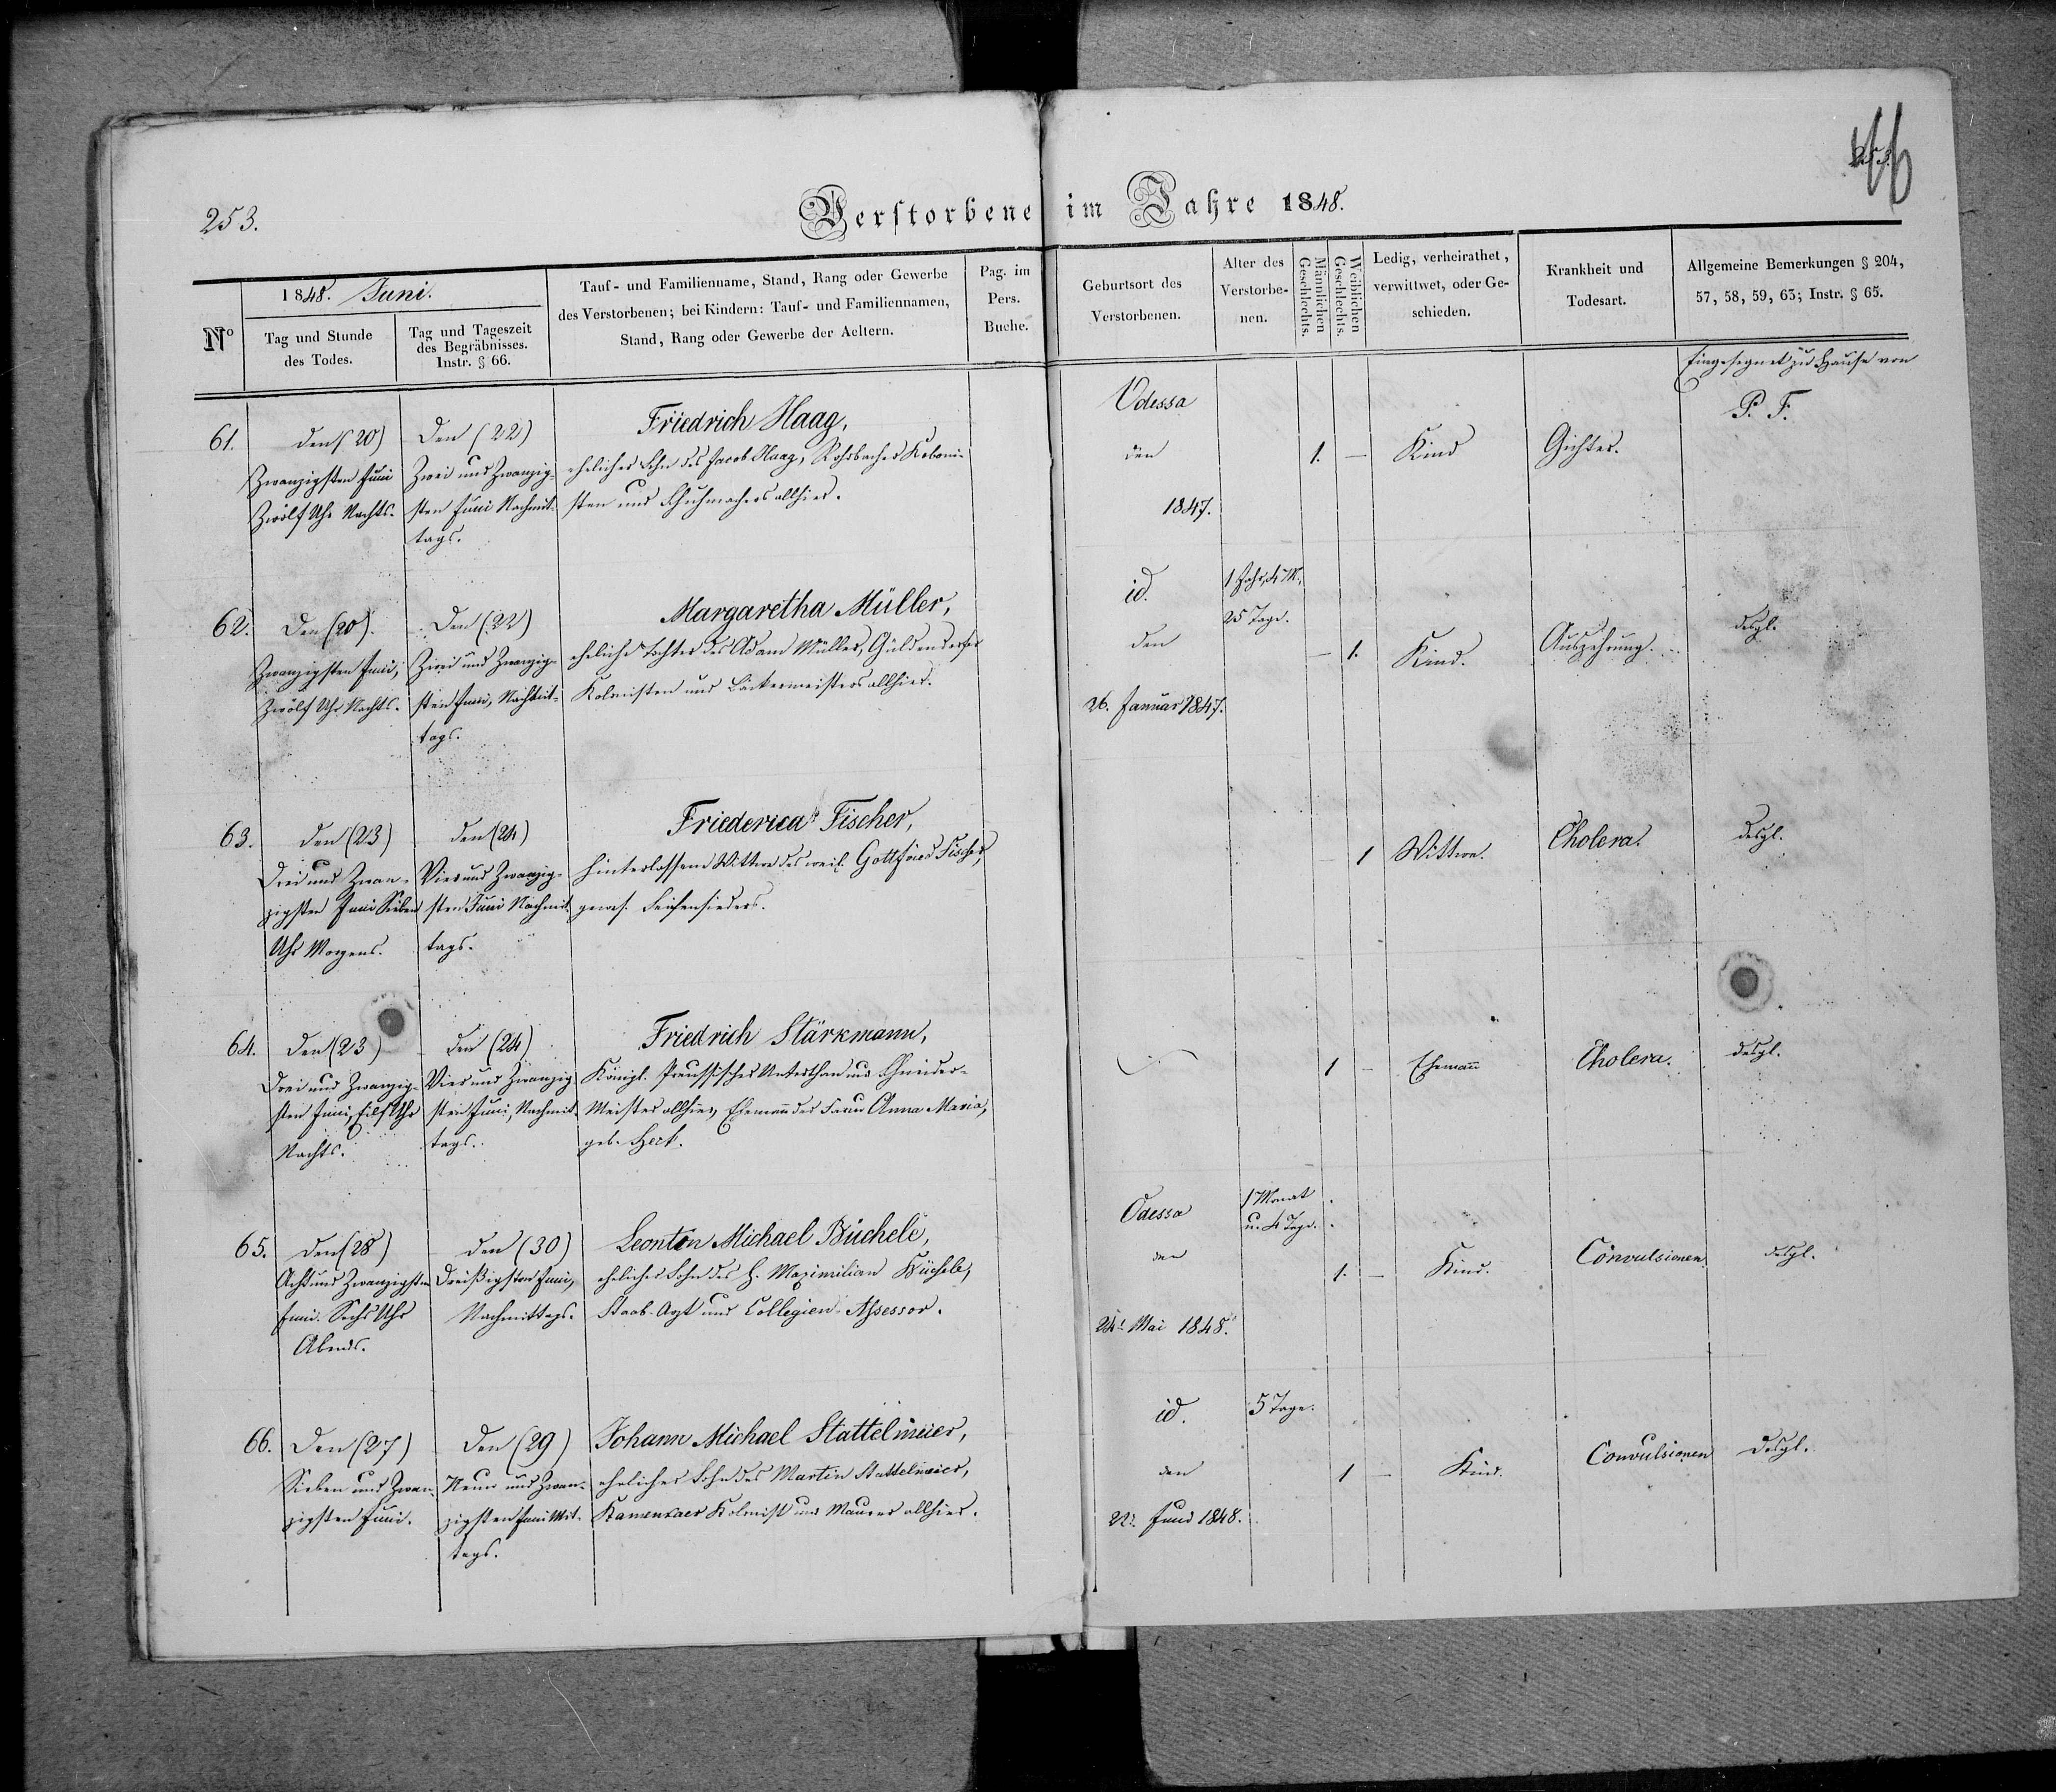 253.
Verstorbene im Jahre 1848.
Nº
1848. Juni.
Tag und Stunde
des Todes.
Tag und Tageszeit
des Begräbnisses.
Instr. § 66.
Tauf- und Familienname, Stand, Rang oder Gewerbe
des Verstorbenen; bei Kindern: Tauf- und Familiennamen,
Stand, Rang oder Gewerbe der Aeltern.
Pag. im
Pers.
Buche.
Geburtsort des
Verstorbenen.
Alter des
Verstorbe-
nen.
Männlichen
Geschlechts.
Weiblichen
Geschlechts.
Ledig, verheirathet,
verwittwet, oder Ge-
schieden.
Krankheit und
Todesart.
Allgemeine Bemerkungen § 204,
57, 58, 59, 63; Instr. § 65.
61.
den (20)
Zwanzigsten Juni
Zwölf Uhr Nachts.
Den (22)
Zwei und Zwanzig-
sten Juni Nachmit-
tags.
Friedrich Haag,
ehelicher Sohn des Jacob Haag, Rohrbacher Koloni-
sten und Schuhmachers allhier.
Odessa
den
1847.
1.
—
Kind
Gichter.
Eingesegnet zu Hause von
P. F.
62.
Den (20).
Zwanzigsten Juni,
Zwölf Uhr Nachts.
Den (22)
Zwei und Zwanzig-
sten Juni, Nachmit-
tags.
Margaretha Müller,
eheliche Tochter des Adam Müller, Güldendorfer
Kolonisten und Bäckermeisters allhier.
id.
den
26. Januar 1847.
1 Jahr, 4 M.,
25 Tage.
—
1.
Kind.
Auszehrung.
desgl.
63.
den (23)
Drei und Zwan-
zigsten Juni Sieben
Uhr Morgens.
den (24)
Vier und Zwanzig-
sten Juni Nachmit-
tags.
Friederica Fischer,
hinterlassene Wittwe des weil. Gottfried Fischer,
gewes. Seifensieders.
1
Wittwe.
Cholera.
desgl.
64.
den (23)
Drei und Zwanzig-
sten Juni, Eilf Uhr
Nachts.
den (24)
Vier und Zwanzig
sten Juni, Nachmit-
tags.
Friedrich Stärkmann,
Königl. Preussischer Unterthan und Schneider-
Meister allhier, Ehemann der Frau Anna Maria,
geb. Heck.
1
—
Ehemann
Cholera.
desgl.
65.
den (28)
Acht und Zwanzigsten
Juni. Sechs Uhr
Abends.
den (30)
Dreißigsten Juni,
Nachmittags.
Leontin Michael Büchele,
ehelicher Sohn des H. Maximilian Büchele,
Staab-Arzt und Collegien-Assessor.
Odessa
den
24. Mai 1848.
1 Monat
u. 4 Tage.
1.
—
Kind.
Convulsionen.
desgl.
66.
Den (27)
Sieben und Zwan-
zigsten Juni.
Den (29)
Neun und Zwan-
zigsten Juni Mit-
tags.
Johann Michael Stattelmeier,
ehelicher Sohn des Martin Stattelmeier,
Kamenkaer Kolonist und Maurer allhier.
id.
den
22. Juni 1848.
5 Tage.
1
—
Kind.
Convulsionen
desgl.